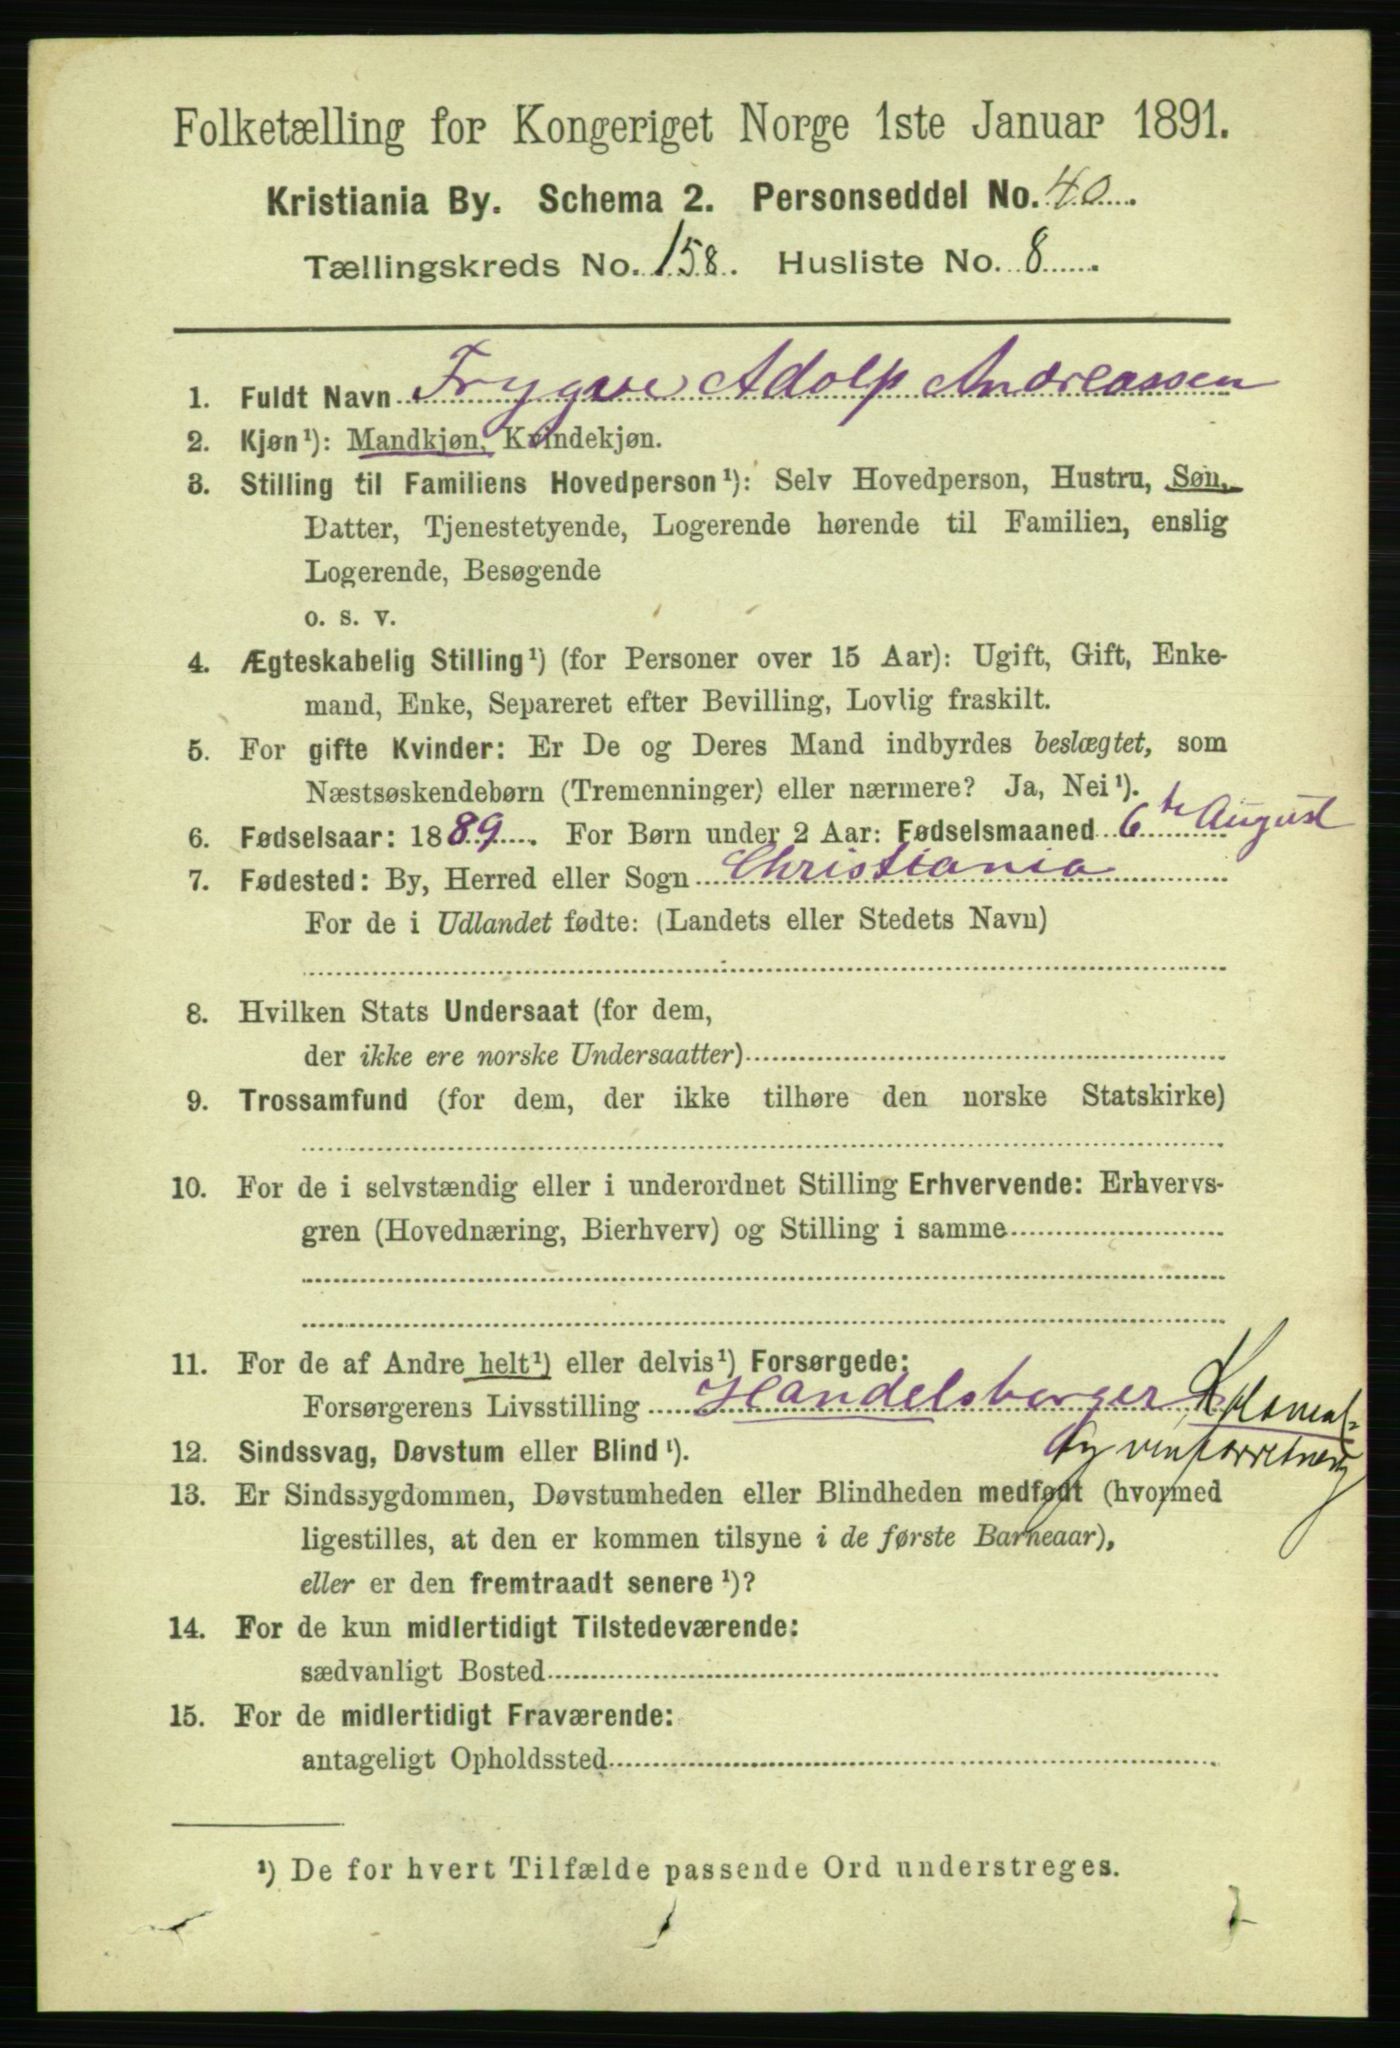 Folketælling for Kongeriget Norge 1ste Januar 1891.
Kristiania By. Schema 2. Personseddel No. 40.
Tællingskreds No. 158. Husliste No. 8.
1. Fuldt Navn Trygve Adolp Andreassen
2. Kjøn¹): Mandkjøn, Kvindekjøn.
3. Stilling til Familiens Hovedperson¹): Selv Hovedperson, Hustru, Søn,
Datter, Tjenestetyende, Logerende hørende til Familien, enslig
Logerende, Besøgende
o. s. v.
4. Ægteskabelig Stilling¹) (for Personer over 15 Aar): Ugift, Gift, Enke-
mand, Enke, Separeret efter Bevilling, Lovlig fraskilt.
5. For gifte Kvinder: Er De og Deres Mand indbyrdes beslægtet, som
Næstsøskendebørn (Tremenninger) eller nærmere? Ja, Nei¹).
6. Fødselsaar: 1889. For Børn under 2 Aar: Fødselsmaaned 6te August
7. Fødested: By, Herred eller Sogn Christiania
For de i Udlandet fødte: (Landets eller Stedets Navn)
8. Hvilken Stats Undersaat (for dem,
der ikke ere norske Undersaatter)
9. Trossamfund (for dem, der ikke tilhøre den norske Statskirke)
10. For de i selvstændig eller i underordnet Stilling Erhvervende: Erhvervs-
gren (Hovednæring, Bierhverv) og Stilling i samme
11. For de af Andre helt¹) eller delvis¹) Forsørgede:
Forsørgerens Livsstilling Handelsborger Kolonial-
og vinforretning
12. Sindssvag, Døvstum eller Blind¹).
13. Er Sindssygdommen, Døvstumheden eller Blindheden medfødt (hvormed
ligestilles, at den er kommen tilsyne i de første Barneaar),
eller er den fremtraadt senere¹)?
14. For de kun midlertidigt Tilstedeværende:
sædvanligt Bosted
15. For de midlertidigt Fraværende:
antageligt Opholdssted
¹) De for hvert Tilfælde passende Ord understreges.